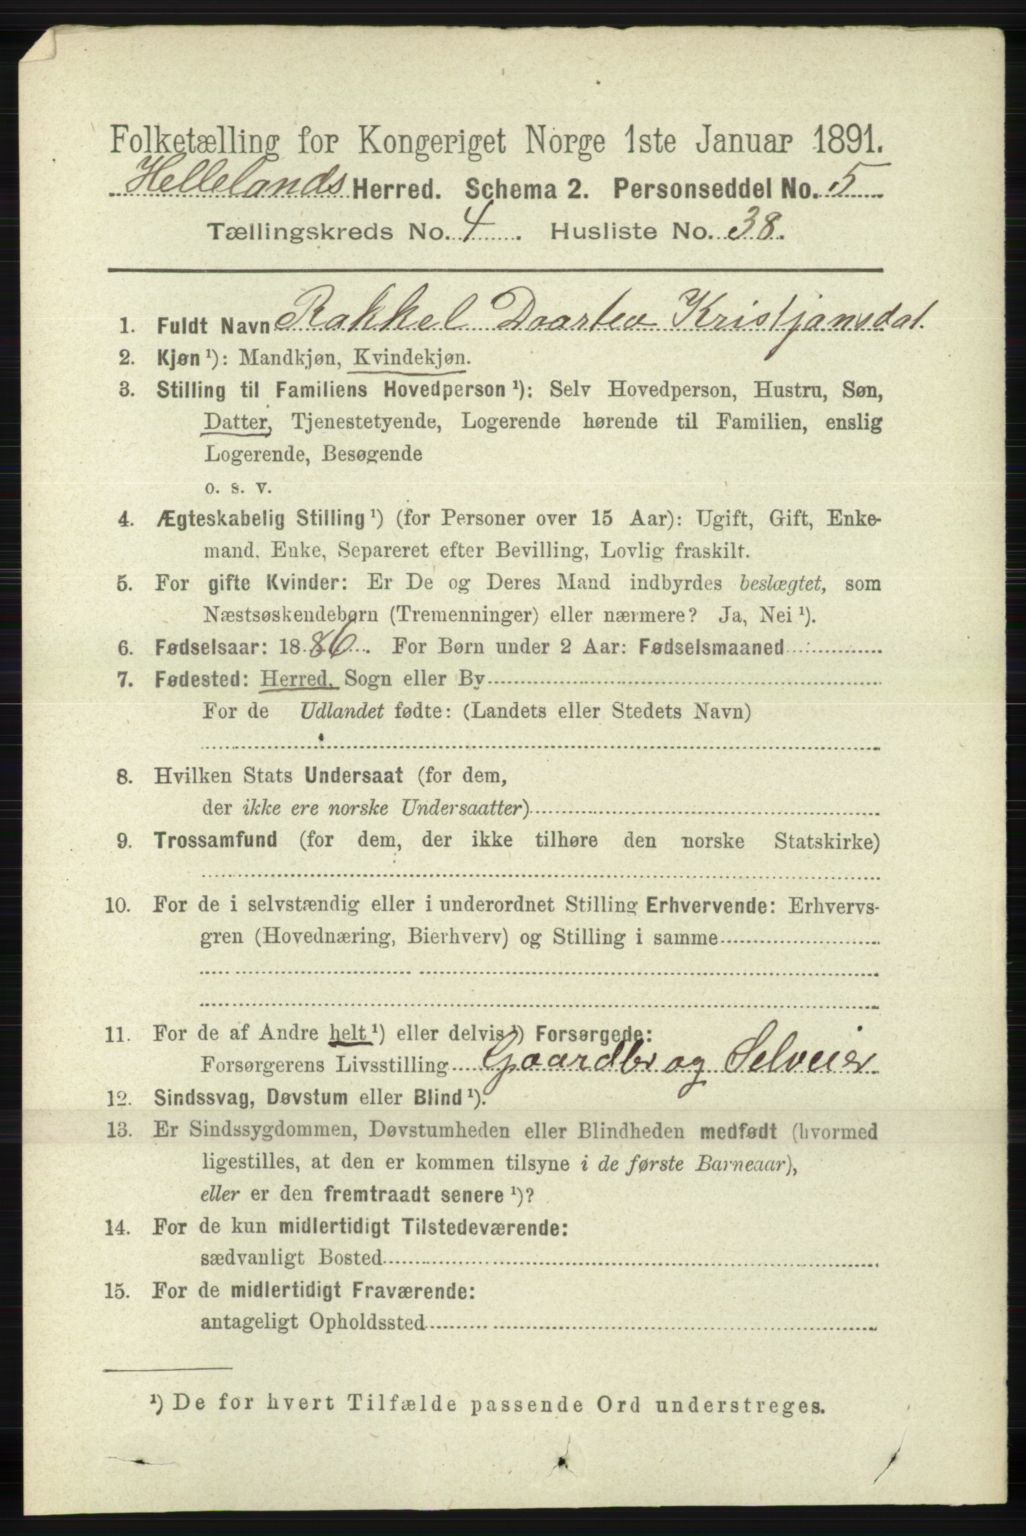 Folketælling for Kongeriget Norge 1ste Januar 1891.
Hellelands Herred. Schema 2. Personseddel No. 5
Tællingskreds No. 4. Husliste No. 38.
1. Fuldt Navn Rakkel Daartea Kristjansdat.
2. Kjøn¹): Mandkjøn, Kvindekjøn.
3. Stilling til Familiens Hovedperson¹): Selv Hovedperson, Hustru, Søn,
Datter, Tjenestetyende, Logerende hørende til Familien, enslig
Logerende, Besøgende
o. s. v.
4. Ægteskabelig Stilling¹) (for Personer over 15 Aar): Ugift, Gift, Enke-
mand, Enke, Separeret efter Bevilling, Lovlig fraskilt.
5. For gifte Kvinder: Er De og Deres Mand indbyrdes beslægtet, som
Næstsøskendebørn (Tremenninger) eller nærmere? Ja, Nei¹).
6. Fødselsaar: 1886. For Børn under 2 Aar: Fødselsmaaned
7. Fødested: Herred, Sogn eller By
For de Udlandet fødte: (Landets eller Stedets Navn)
8. Hvilken Stats Undersaat (for dem,
der ikke ere norske Undersaatter)
9. Trossamfund (for dem, der ikke tilhøre den norske Statskirke)
10. For de i selvstændig eller i underordnet Stilling Erhvervende: Erhvervs-
gren (Hovednæring, Bierhverv) og Stilling i samme
11. For de af Andre helt¹) eller delvis¹) Forsørgede:
Forsørgerens Livsstilling Gaardbr og Selveier
12. Sindssvag, Døvstum eller Blind¹).
13. Er Sindssygdommen, Døvstumheden eller Blindheden medfødt (hvormed
ligestilles, at den er kommen tilsyne i de første Barneaar),
eller er den fremtraadt senere¹)?
14. For de kun midlertidigt Tilstedeværende:
sædvanligt Bosted
15. For de midlertidigt Fraværende:
antageligt Opholdssted
¹) De for hvert Tilfælde passende Ord understreges.